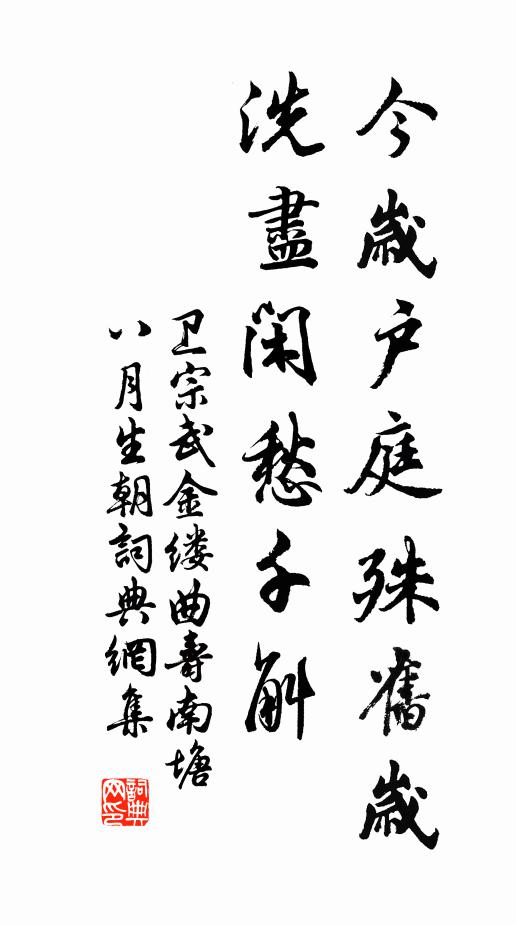 今歲戶庭殊舊歲
洗盡閑愁千斛
卫宗武金缕曲壽南塘
八月生朝詞典網集
詞典网印